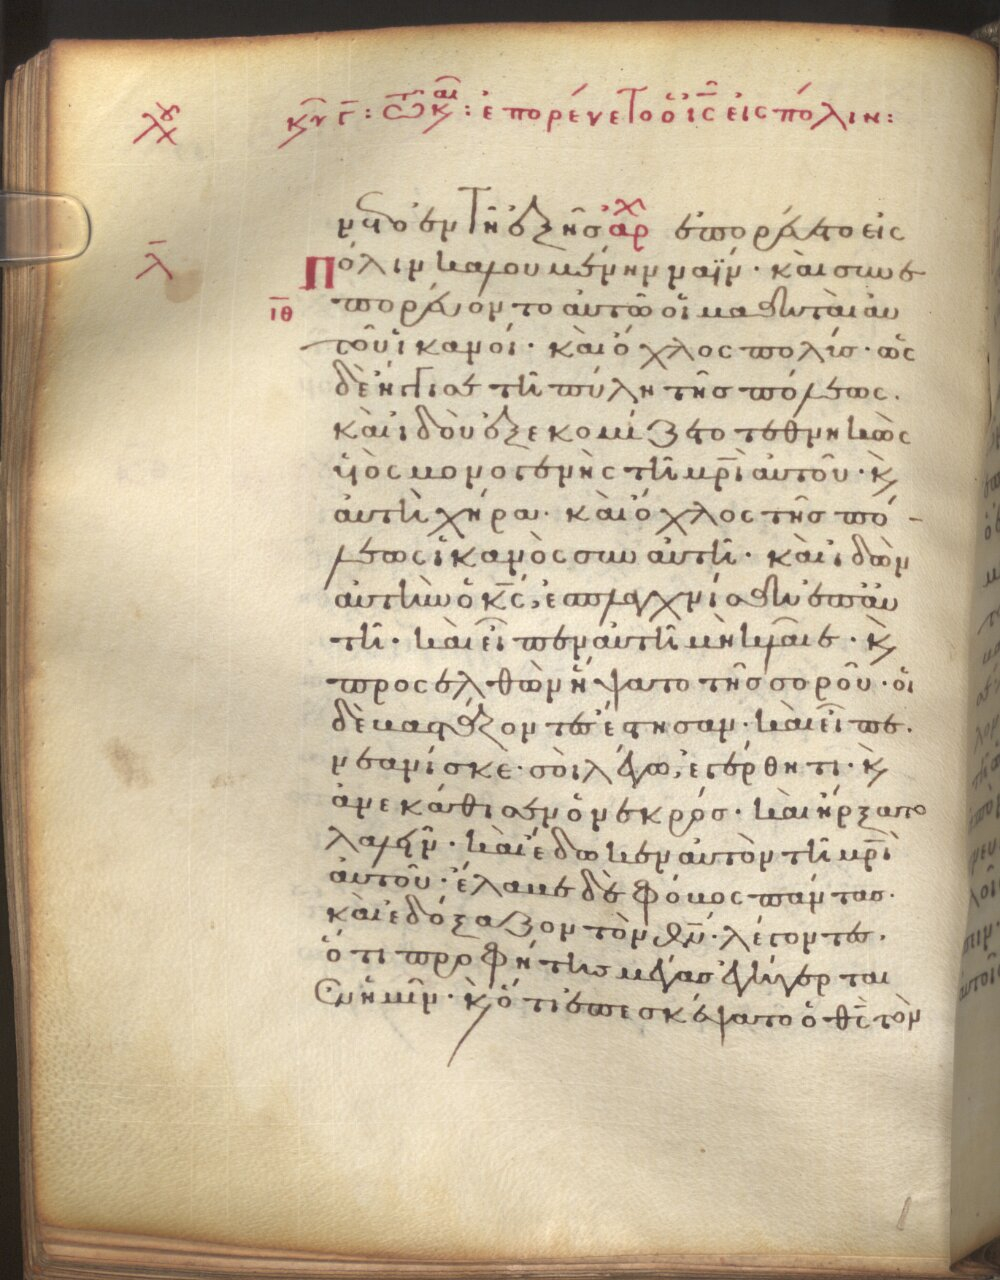 κυ γ: τω και: ἐπορεύετο ὁ ις εἰς πόλιν:
νετο ἐν τῆ ἑξῆς αρχ ἐπορεύετο εἰς
λ
Πόλιν καλουμένην ναΐν· καὶ συνε
ιθ
πορεύοντο αὐτῶ οἱ μαθηταὶ αὐ
τοῦ ἱκανοί· καὶ ὄχλος πολύς· ὡς
δὲ ἤγγισε τῆ πύλη τῆς πόλεως.
καὶ ἰδοὺ ἐξεκομίζετο τεθνηκὼς
υἱὸς μονογενὴς τῆ μρὶ αὐτοῦ· κ
αὐτὴ χήρα· καὶ ὄχλος τῆς πό-
λεως ἱκανὸς συν αὐτῆ· καὶ ἰδὼν
αὐτὴν ὁ κς, ἐσπλαγχνίσθη ἐπ' αὐ
τῆ· καὶ εἶπεν αὐτῆ μὴ κλαῖε· κ
προσελθὼν ἥψατο τῆς σοροῦ· οἱ
δὲ βαστάζοντες ἔστησαν· καὶ εἶπε.
νεανίσκε· σοὶ λέγω, ἐγέρθητι· κ
ἀνεκάθισεν ὁ νεκρός· καὶ ἤρξατο
λαλεῖν· καὶ ἔδωκεν αὐτὸν τῆ μρὶ
αὐτοῦ· ἔλαβε δὲ φόβος πάντας·
καὶ ἐδόξαζον τὸν θν· λέγοντες.
ὅτι προφήτης μέγας ἐγήγερται
ἐν ἡμῖν· κ ὅτι ἐπεσκέψατο ὁ θς τὸν